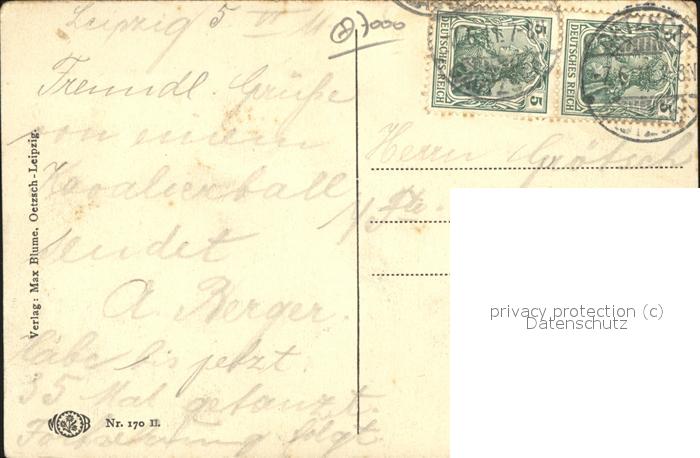 Leipzig 5 VI 11
7000
Freundl. Grüße
von einem
Kavalierball
sendet
A. Berger.
Habe bis jetzt
35 Mal getanzt.
Fortsetzung folgt
Verlag: Max Blume, Oetzsch-Leipzig.
Nr. 170 II.
5 DEUTSCHES REICH 5
5 DEUTSCHES REICH 5
Herrn
privacy protection (c)
Datenschutz